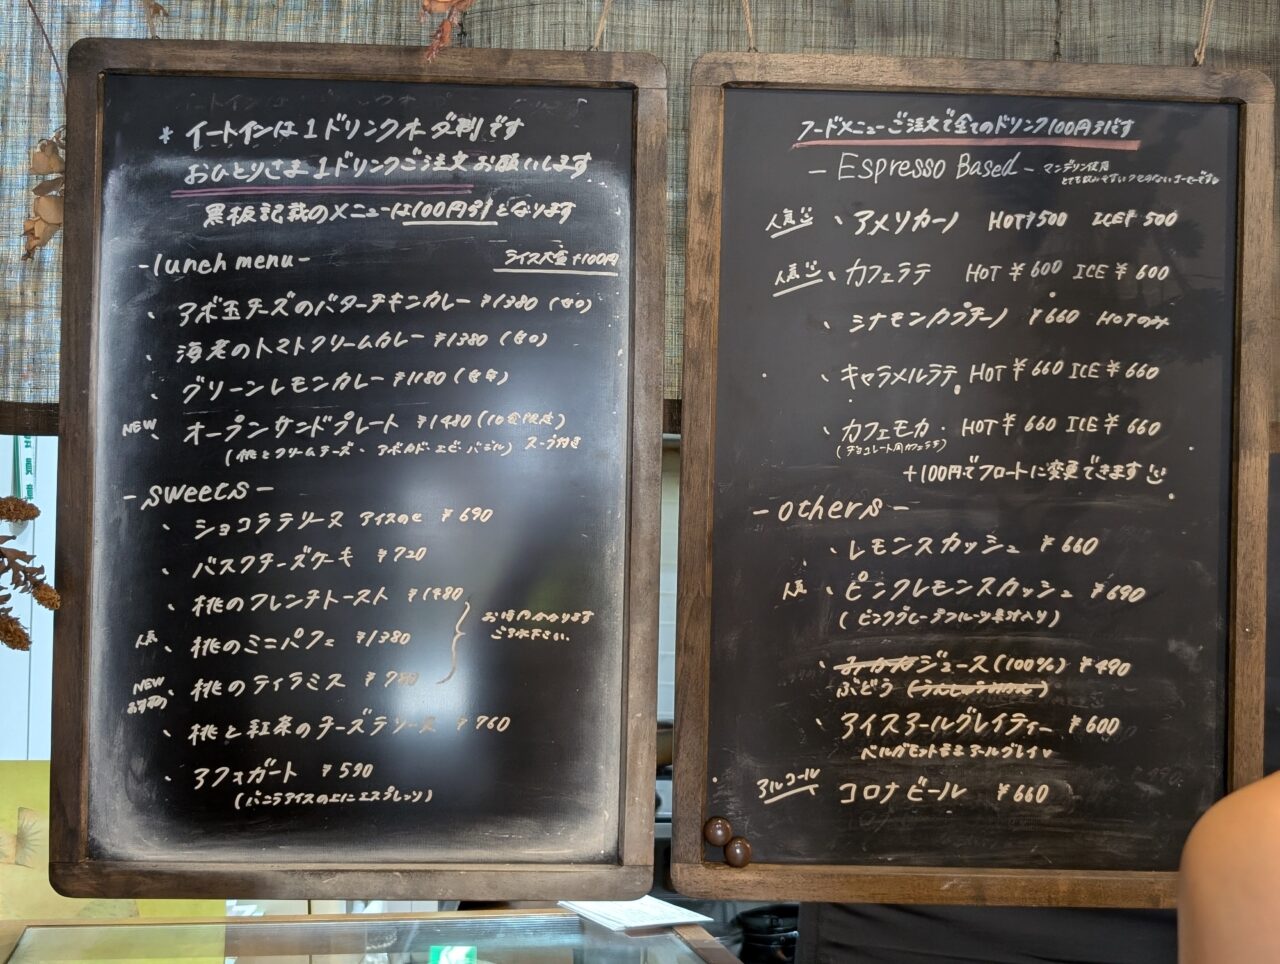 * イートインは1ドリンクオーダー制です
おひとりさま1ドリンクご注文お願いします
黒板記載のメニューは100円引となります
-lunch menu-
ライス大盛+100円
、アボ玉チーズのバターチキンカレー ¥1380 (甘口)
、海老のトマトクリームカレー ¥1380 (甘口)
、グリーンレモンカレー ¥1180
NEW 、オープンサンドプレート ¥1480 (10食限定)
(桃とクリームチーズ・アボカド・エビ・バジル) スープ付き
- sweets -
、ショコラテリーヌ アイスのせ ¥690
、バスクチーズケーキ ¥720
、桃のフレンチトースト ¥1480
お時間かかります
ご了承下さい。
人気 、桃のミニパフェ ¥1380
NEW おすすめ 、桃のティラミス ¥780
、桃と紅茶のチーズテリーヌ ¥760
、アフォガート ¥590
(バニラアイスの上にエスプレッソ)
フードメニューご注文で全てのドリンク100円引です
- Espresso Based - マンデリン使用
とても飲みやすいクセのないコーヒーです
人気 、アメリカーノ HOT¥500 ICE¥500
人気 、カフェラテ HOT ¥600 ICE ¥600
、シナモンカプチーノ ¥660 HOTのみ
、キャラメルラテ HOT ¥660 ICE ¥660
、カフェモカ HOT ¥660 ICE ¥660
(チョコレート風カフェラテ)
+100円でフロートに変更できます
- others -
、レモンスカッシュ ¥660
人気 、ピンクレモンスカッシュ ¥690
(ピンクグレープフルーツ果汁入り)
、みかんジュース (100%) ¥490
ぶどう (うんしゅうみかん)
、アイスアールグレイティー ¥600
ベルガモット香るアールグレイ♥
アルコール 、コロナビール ¥660